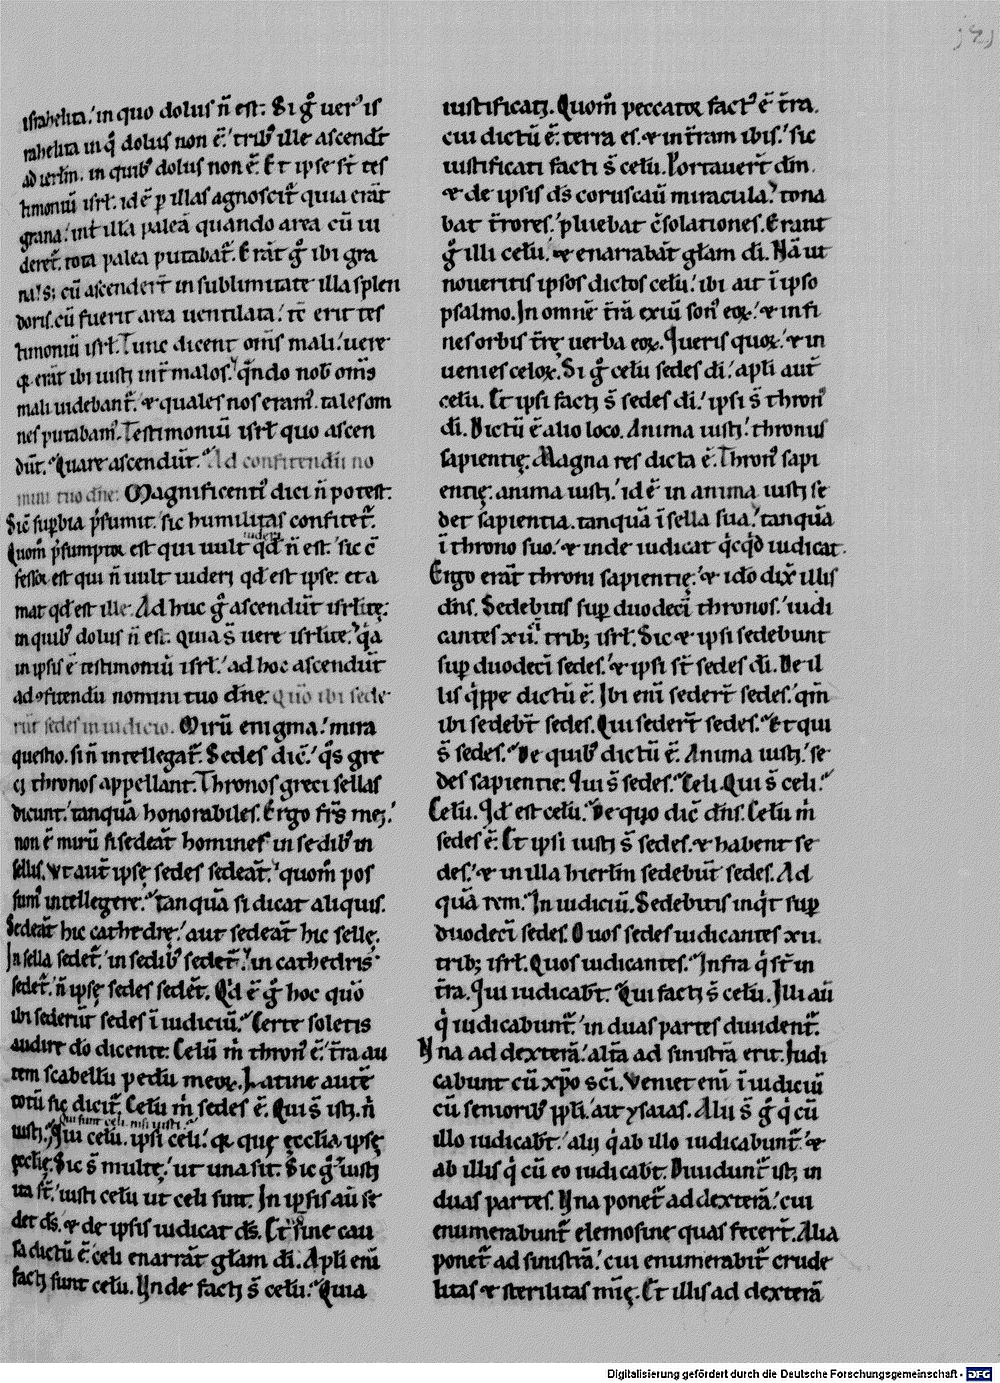 israhelita.' in quo dolus n̄ est. Si gͦ uerꝰ is
rahelita in q̊ dolus non ē.' tribꝰ ille ascendit
ad ierlm̄. in quibꝰ dolus non ē. Et ipse st̄ tes
timoniū isrl̄. id ē p illas agnoscit̄ quia erāt
grana.' int̄ illā paleā quando area cū ui
deret̄. tota palea putabat̄. Erāt gͦ ibi gra
na; cū ascenderit in sublimitate illa splen
doris. cū fuerit area uentilata.' tc̄ erit tes
timoniū isrl̄. Tunc dicent om̄s mali.' uere
qa erāt ibi iusti int̄ malos. qn̄do nob̄ om̄s
mali uidebant̄. & quales nos eramꝰ. tales om
nes putabamꝰ. Testimoniū isrl̄ quo ascen
dūt. Quare ascendūt. Ad confitendū no
mini tuo dn̄e. Magnificentiꝰ dici n̄ potest.
Sic̄ supbia p̄sumit. sic humilitas confitet̄.
uideri
Quom̄ p̄sumptor est qui uult qd̄ n̄ est. sic c̄
fessor est qui n̄ uult uideri qd̄ est ipse. et a
mat qd̄ est ille. Ad huc gͦ ascendūt isrl̄itę.
in quibꝰ dolus n̄ est. quia s̄ uere isrl̄itę. q̄a
in ipsis ē testimoniū isrl̄.' ad hoc ascendūt
ad ꝯfitendū nomini tuo dn̄e. Quō ibi sede
rūt sedes in iudicio. Mirū enigma.' mira
questio. si n̄ intellegat̄. Sedes dic̄.' q̄s gre
ci thronos appellant. Thronos greci sellas
dicunt.' tanquā honorabiles. Ergo frs̄ mei.'
non ē mirū si sedeāt homines in sedibꝰ in
sellis. ut aut̄ ipsę sedes sedeāt.' quom̄ pos
sumꝰ intellegere. tanquā si dicat aliquis.
Sedeāt hic cathedrę.' aut sedeāt hic sellę.
In sella sedet̄.' in sedibꝰ sedet̄.' in cathedris
sedet̄.' n̄ ipsę sedes sedēt. Qd̄ ē gͦ hoc quō
ibi sederūt sedes ī iudiciū. Certe soletis
audire dō dicente. Celū m̄ thronꝰ ē.' t̄ra au
tem scabellū pedū meoꝝ. Latine autē
totū sic dicit̄. Celū m̄ sedes ē. Qui s̄ isti. n̄
Qui sunt celi. nisi iusti.
iusti. Qui celū. ipsi celi.' qa quę ęcclīa ipsę
ęcclīę. Sic s̄ multę.' ut una sit. Sic gͦ iusti
ita st̄.' iusti celū ut celi sunt. In ipsis aū se
det ds̄. & de ipsis iudicat ds̄. Et sine cau
sa dictū ē. celi enarrāt glam̄ di̅. Apli̅ eni̅
facti sunt celū. Unde facti s̄ celū. Quia
iustificati. Quom̄ peccator factꝰ ē t̄ra.
cui dictū ē. terra es. & in t̄ram ibis.' sic
iustificati facti s̄ celū. Portauert̄ dm̄.
& de ipsis ds̄ coruscau̅ miracula.' tona
bat t̄rores.' pluebat c̄solationes. Erant
gͦ illi celū.' & enarrabāt glam̄ di̅. Nā ut
noueritis ipsos dictos celū.' ibi ait ī ipso
psalmo. In omnē t̄rā exiū sonꝰ eoꝝ.' & in fi
nes orbis t̄rę uerba eoꝝ. Queris quoꝝ.' & in
uenies celoꝝ. Si gͦ celū sedes di̅.' apli̅ aut̄
celū. Et ipsi facti s̄ sedes di̅.' ipsi s̄ thronꝰ
di̅. Dictū ē alio loco. Anima iusti.' thronus
sapientię. Magna res dicta ē. Thronꝰ sapi
entię. anima iusti.' id ē in anima iusti se
det sapientia. tanquā ī sella sua.' tanquā
ī throno suo.' & inde iudicat q̊cqd̄ iudicat.
Ergo erāt throni sapientię.' & idō dix̄ illis
dn̄s. Sedebitis sup duodecī thronos.' iudi
cantes xii. tribꝫ isrl̄. Sic & ipsi sedebunt
sup duodecī sedes.' & ipsi st̄ sedes di̅. De il
lis q̊ppe dictū ē. Ibi eni̅ sedert̄ sedes.' qm̄
ibi sedebt̄ sedes. Qui sedert̄ sedes. Et qui
s̄ sedes. De quibꝰ dictū ē. Anima iusti.' se
des sapientie. Qui s̄ sedes. Celi. Qui s̄ celi.
Celū. Qd̄ est celū. De quo dic̄ dn̄s. Celū m̄
sedes ē. Et ipsi iusti s̄ sedes. & habent se
des.' & in illa hierlm̄ sedebūt sedes. Ad
quā rem. In iudiciū. Sedebitis inq̊t sup
duodecī sedes. Duos sedes iudicantes xii.
tribꝫ isrl̄. Quos iudicantes. Infra q̊ st̄ in
t̄ra. Qui iudicabt̄. Qui facti s̄ celū. Illi au̅
q̊ iudicabunt̄.' in duas partes diuident̄.
Una ad dexterā.' alt̄a ad sinistrā erit. Iudi
cabunt cū xp̄o sc̄i. Veniet eni̅ ī iudiciū
cū senioribꝰ ppli̅.' ait ysaias. Alii s̄ gͦ q̊ cū
illo iudicabt̄.' alii q̊ ab illo iudicabunt̄.' &
ab illis q̊ cū eo iudicabt̄. Diuidunt̄ isti in
duas partes. Una ponet̄ ad dexterā.' cui
enumerabunt̄ elemosine quas fecert̄. Alia
ponet̄ ad sinistrā.' cui enumerabit̄ crude
litas & sterilitas mīę. Et illis ad dexterā
Digitalisierung gefördert durch die Deutsche Forschungsgemeinschaft - DFG